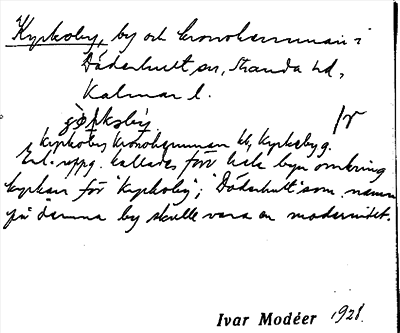 Kyrkoby, by och kronohemman i
Döderhult sn, Stranda hd,
Kalmar l.
kyrkoby kronohemman bl, kyrkoby g.
Enl. uppg. kallades förr hela byn omkring
kyrkan för "Kyrkoby"; "Döderhult" som namn
på denna by skulle vara en modernitet.
Ivar Modéer 1928.